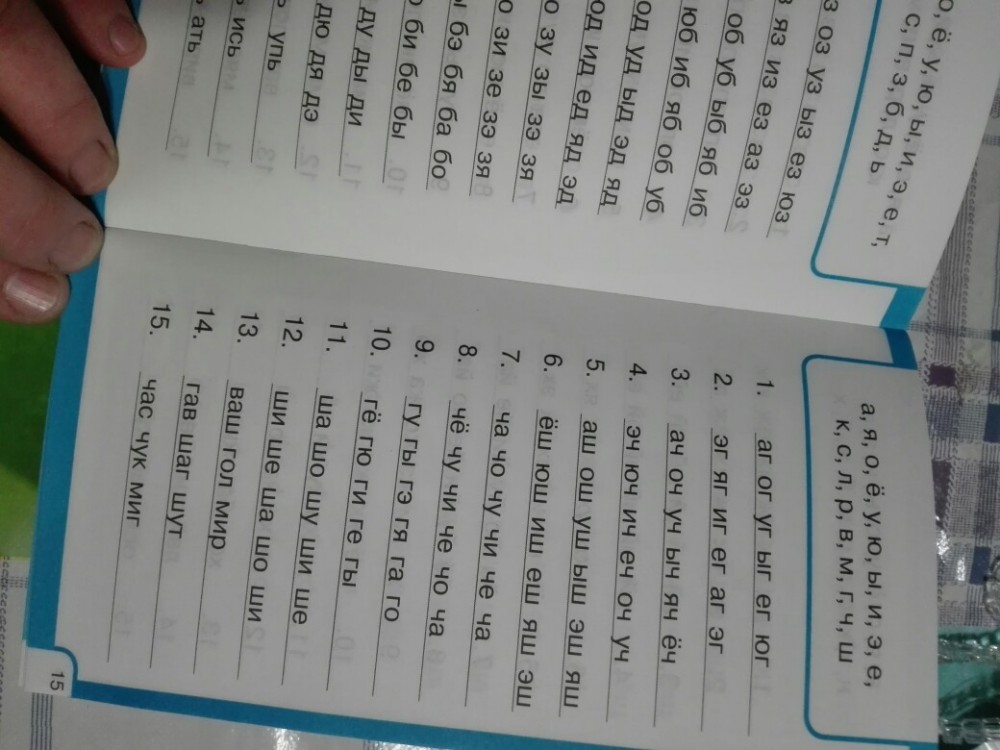 о, ё, у, ю, ы, и, э, е, т,
с, п, з, б, д, ь
оз уз ыз ез юз
яз из ез аз эз
об уб ыб яб иб
юб иб яб об уб
од уд ыд эд яд
од ид ед яд эд
зу зы зэ зя
зи зе зэ зя
бэ бя ба бо
би бе бы
ду ды ди
дю дя дэ
упь
ись
ать
а, я, о, ё, у, ю, ы, и, э, е,
к, с, л, р, в, м, г, ч, ш
1. аг ог уг ыг ег юг
2. эг яг иг ег аг эг
3. ач оч уч ыч яч ёч
4. эч юч ич еч оч уч
5. аш ош уш ыш эш яш
6. ёш юш иш еш яш эш
7. ча чо чу чи че ча
8. чё чу чи че чо ча
9. гу гы гэ гя га го
10. гё гю ги ге гы
11. ша шо шу ши ше
12. ши ше ша шо ши
13. ваш гол мир
14. гав шаг шут
15. час чук миг
15